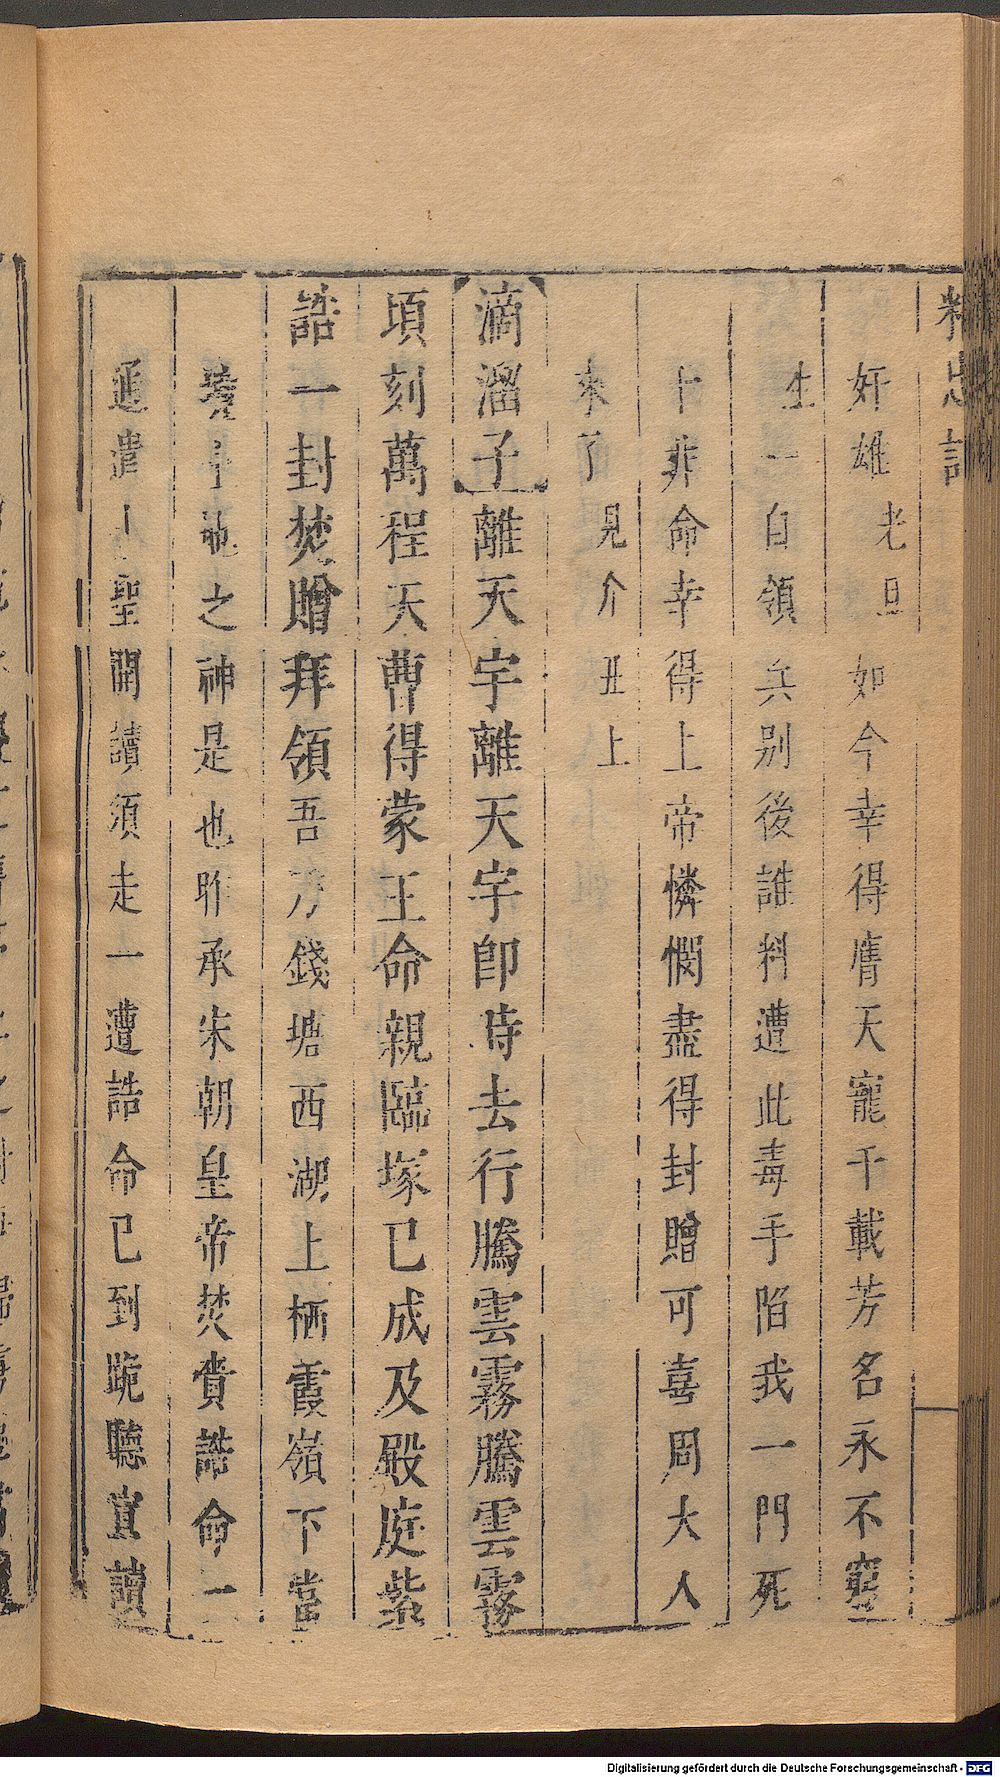 精忠記
奸雄老旦如今幸得膺天寵千載芳名永不窮
生一自領兵別後誰料遭此毒手陷我一門死
十非命幸得上帝憐憫盡得封贈可喜周大人
來了見介丑上
滴溜子離天宇離天宇卽時去行騰雲霧騰雲霧
頃刻萬程天曹得蒙王命親臨塚已成及殿庭紫
誥一封焚贈拜領吾乃錢塘西湖上栖霞嶺下當
境之神是也昨承宋朝皇帝焚賫誥命一
通聖開讀須走一遭誥命已到跪聽宣讀
Digitalisierung gefördert durch die Deutsche Forschungsgemeinschaft - DFG